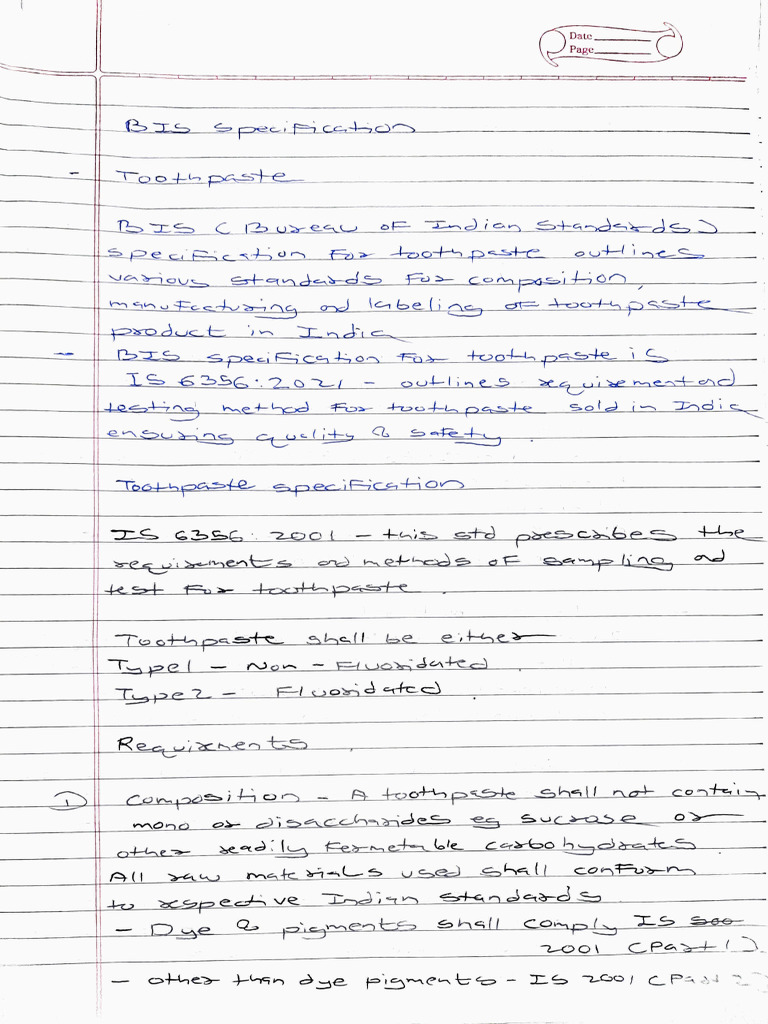 Date
Page
BIS specification
- Toothpaste
BIS (Bureau of Indian Standards)
specification for toothpaste outlines
various standards for composition,
manufacturing and labeling of toothpaste
product in India
- BIS specification for toothpaste is
IS 6356:2021 - outlines requirement and
testing method for toothpaste sold in India
ensuring quality & safety.
Toothpaste specification
IS 6356:2001 - this std prescribes the
requirements and methods of sampling and
test for toothpaste.
Toothpaste shall be either
Type1 - Non - Fluoridated.
Type2 - Fluoridated.
Requirments.
① Composition - A toothpaste shall not contain
mono or disaccharides eg sucrose or
other readily fermetable carbohydrates.
All raw materials used shall conform
to respective Indian standards
- Dye & pigments shall comply IS
2001 (Part 1)
- other than dye pigments - IS 2001 (Part 2)